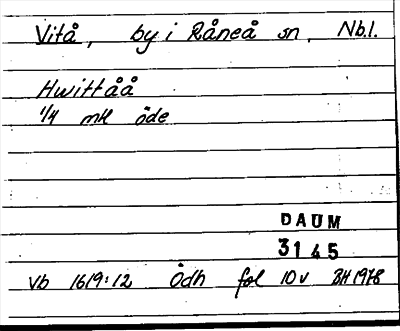 Vitå, by i Råneå sn. Nb.l.
Hwittåå
1/4 mtl öde
DAUM
3145
Vb 1619:12 Ödh fol 10v BH 1978